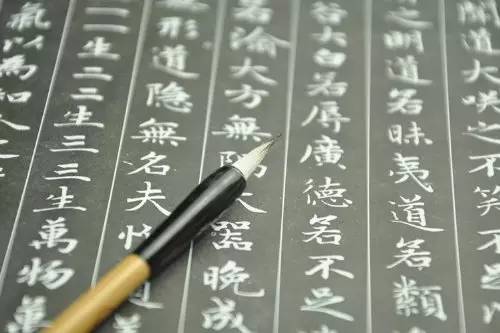 道大咲之不笑不
之明道若昧夷道若類
谷大白若辱廣德若不足
若渝大方無隅大器晚成
無形道隱無名夫
一生二二生三三生萬物萬
氣以為和人之